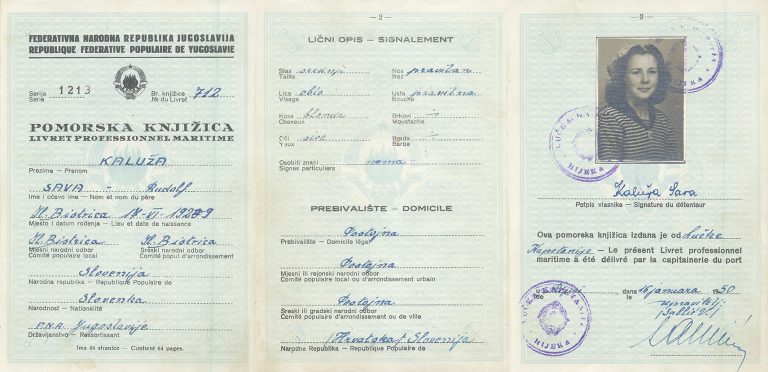 FEDERATIVNA NARODNA REPUBLIKA JUGOSLAVIJA
REPUBLIQUE FEDERATIVE POPULAIRE DE YUGOSLAVIE
Serija 1213 Br. knjižice 712
Serie No du Livret
POMORSKA KNJIŽICA
LIVRET PROFESSIONNEL MARITIME
KALUŽA
Prezime — Prenom
SAVA - Rudolf
Ime i očevo ime — Nom et nom du père
Il. Bistrica 17-VI-
Mjesto i datum rođenja — Lieu et date de naissance
Il. Bistrica Il. Bistrica
Mjesni narodni odbor Sreski narodni odbor
Comité populaire local Comité popul. d'arrondissement
Slovenija
Narodna republika — Republique Populaire de
Slovenka
Narodnost — Nationalité
F.N.R. Jugoslavije
Državljanstvo — Ressortissant
Ima 64 stranice — Contient 64 pages.
— 2 —
LIČNI OPIS — SIGNALEMENT
Stas srednji Nos pravilan
Taille Nez
Lice Usta pravilna
Visage Bouche
Kosa Brkovi —
Cheveux Moustache
Oči sive Brada —
Yeux Barbe
Osobiti znaci nema
Signes particuliers
PREBIVALIŠTE — DOMICILE
Postojna
Prebivalište — Domicile légal
Postojna
Mjesni ili rejonski narodni odbor
Comité populaire local ou d'arrondissement urbain
Postojna
Sreski ili gradski narodni odbor
Comité populaire d'arrondissement ou de ville
(Hrvatska) Slovenija
Narodna Republika — Republique Populaire de
— 3 —
LUČKA KAPETANIJA
RIJEKA
Kaluža Sava
Potpis vlasnika — Signature du détenteur
Ova pomorska knjižica izdana je od Lučke
Kapetanije — Le présent Livret professionnel
maritime a été délivré par la capitainerie du port
dne 16 januara 1950
le
upravitelj:
LUČKA KAPETANIJA
RIJEKA